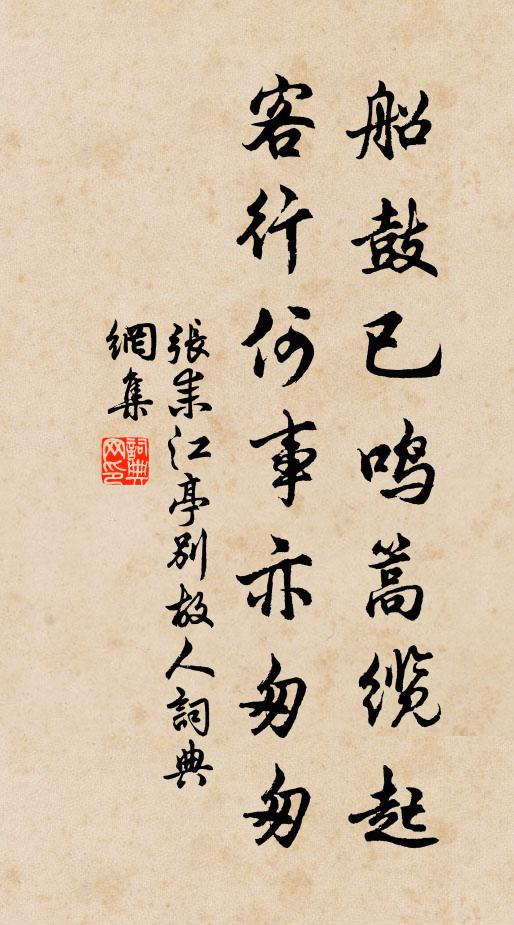 船鼓已鸣篙缆起
客行何事亦匆匆
張耒江亭别故人詞典
網集
詞典网印